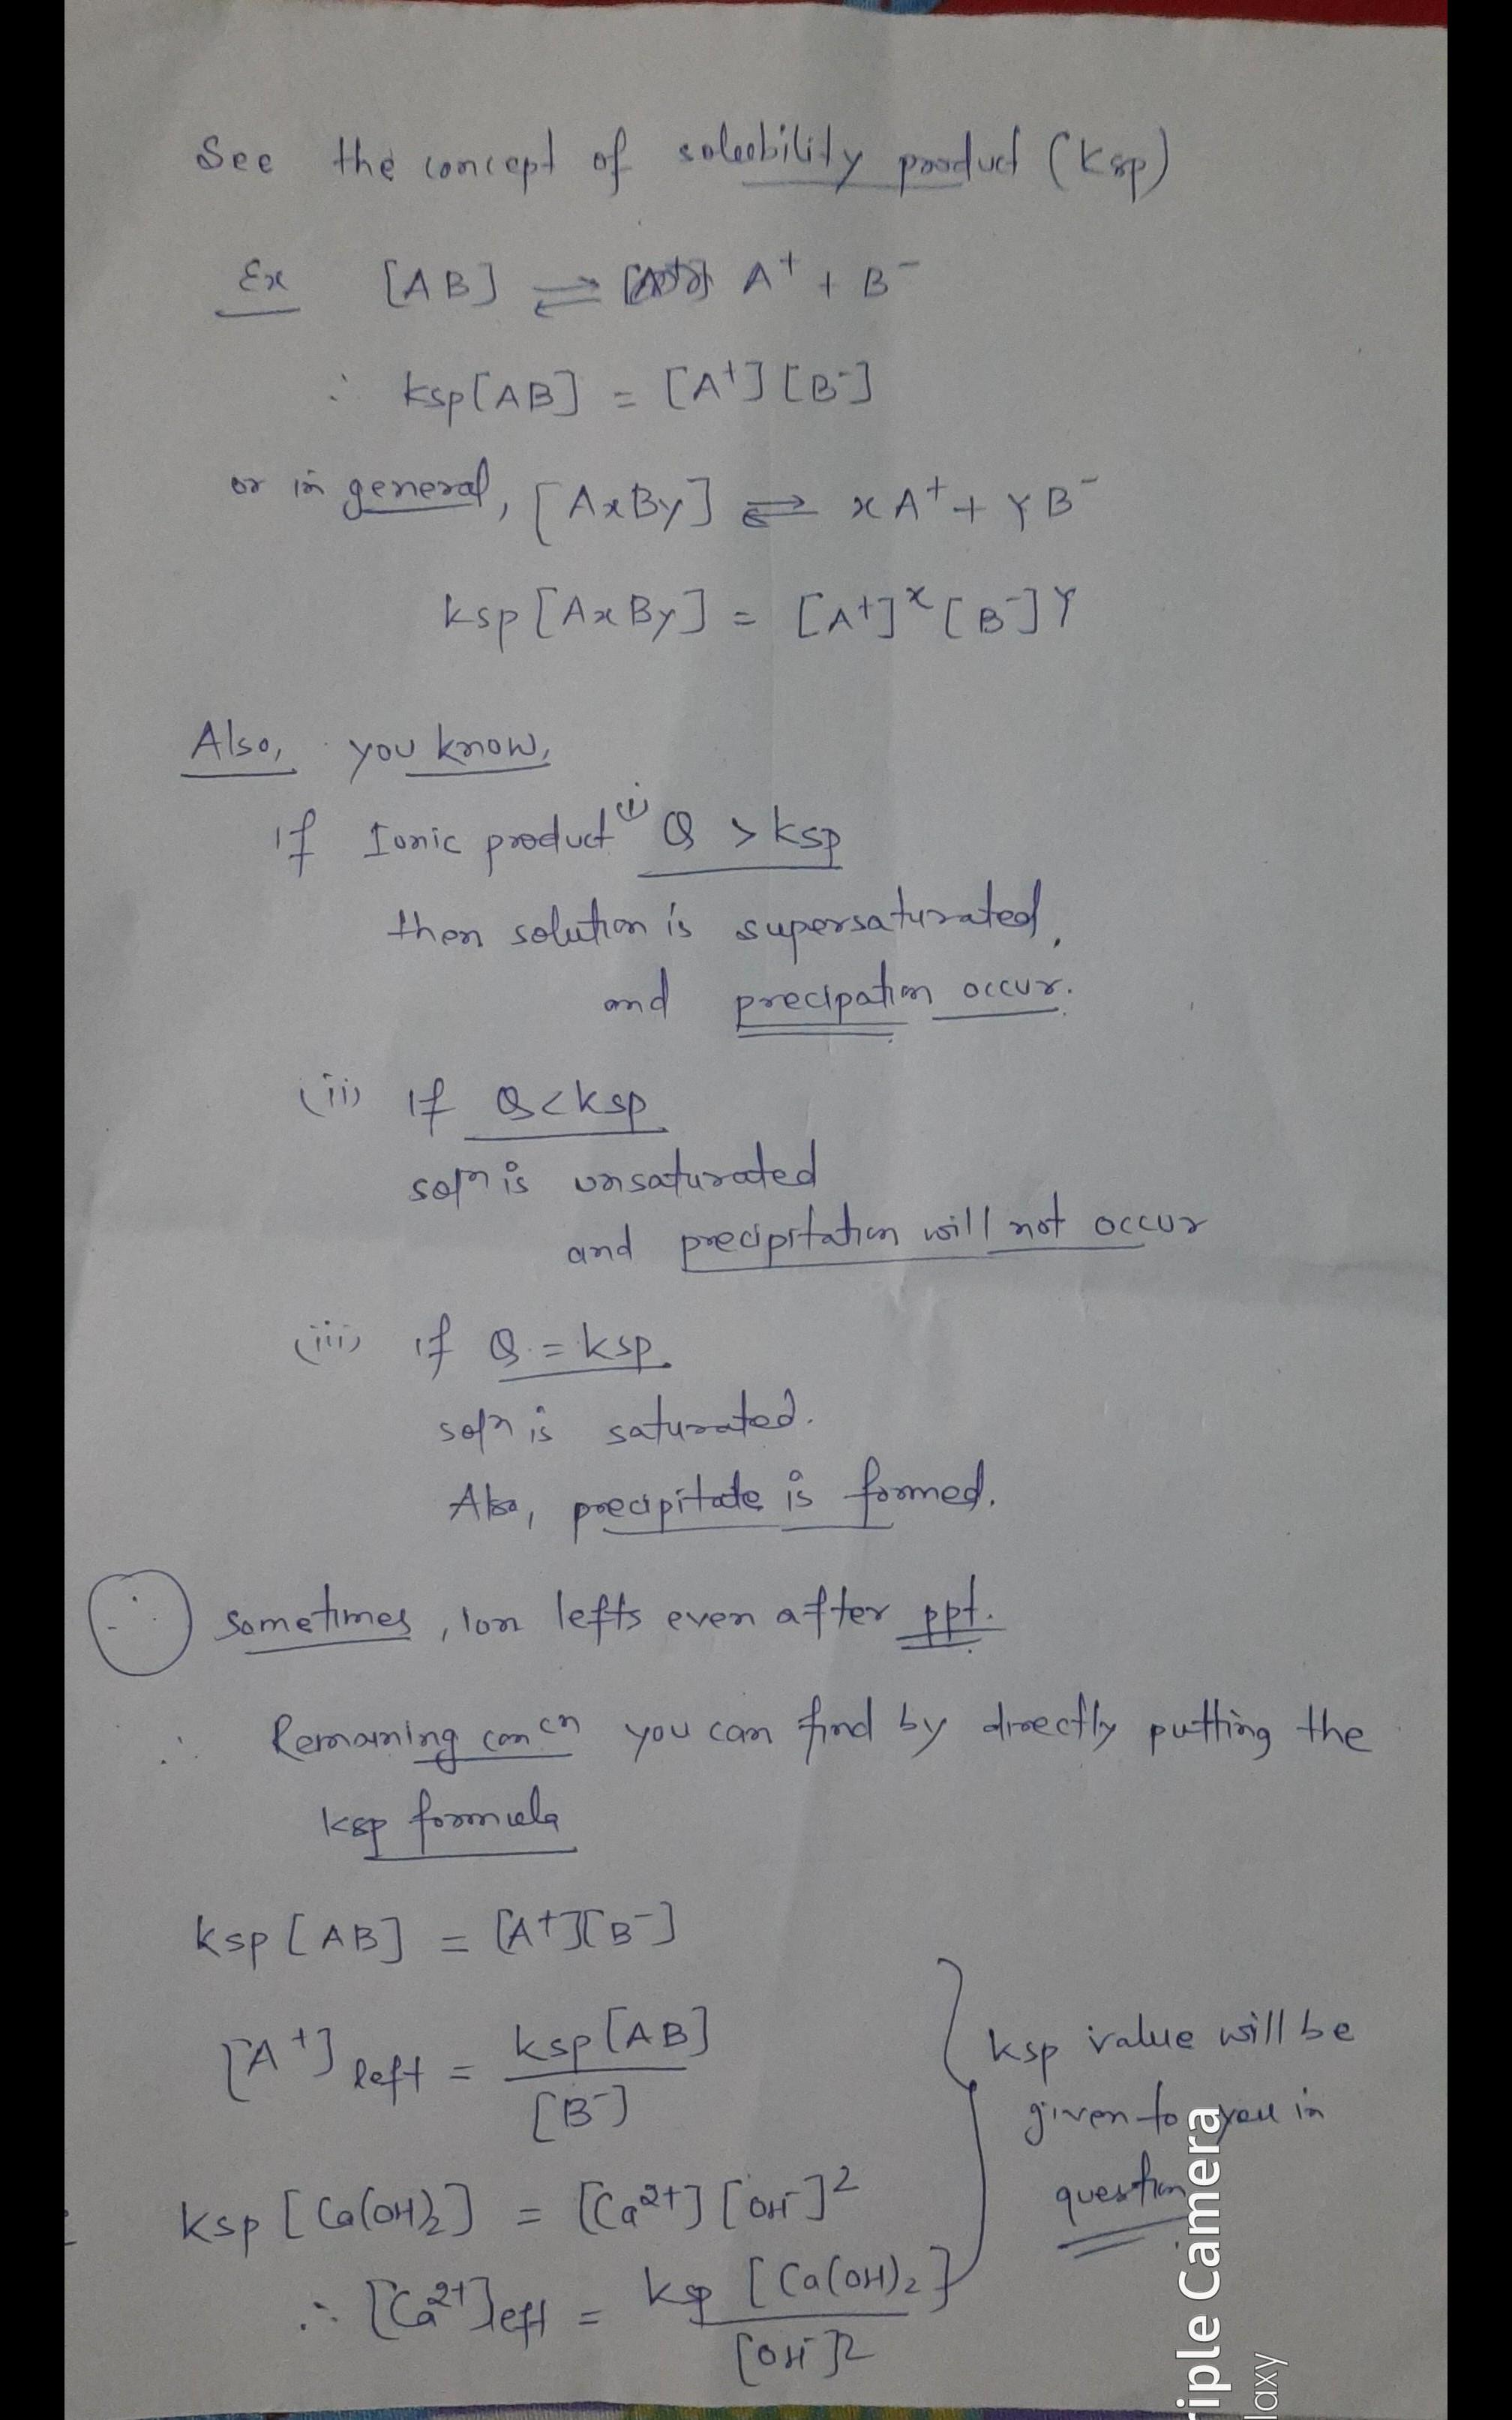 See the concept of solubility product (Ksp)
Ex [AB] ⇌ A⁺ + B⁻
∴ Ksp[AB] = [A⁺][B⁻]
or in general, [AxBy] ⇌ xA⁺ + yB⁻
Ksp[AxBy] = [A⁺]ˣ[B⁻]ʸ
Also, you know,
If Ionic product (i) Q > Ksp
then solution is supersaturated,
and precipation occur.
(ii) If Q < Ksp
solⁿ is unsaturated
and precipitation will not occur
(iii) if Q = Ksp
solⁿ is saturated.
Also, precipitate is formed.
∴ Sometimes, Ion lefts even after ppt.
∴ Remaining concⁿ you can find by directly putting the
Ksp formula
Ksp[AB] = [A⁺][B⁻]
[A⁺]left = Ksp[AB] / [B⁻]
Ksp value will be
given to you in
question
Ksp[Ca(OH)₂] = [Ca²⁺][OH⁻]²
∴ [Ca²⁺]left = Ksp[Ca(OH)₂] / [OH⁻]²
riple Camera
laxy